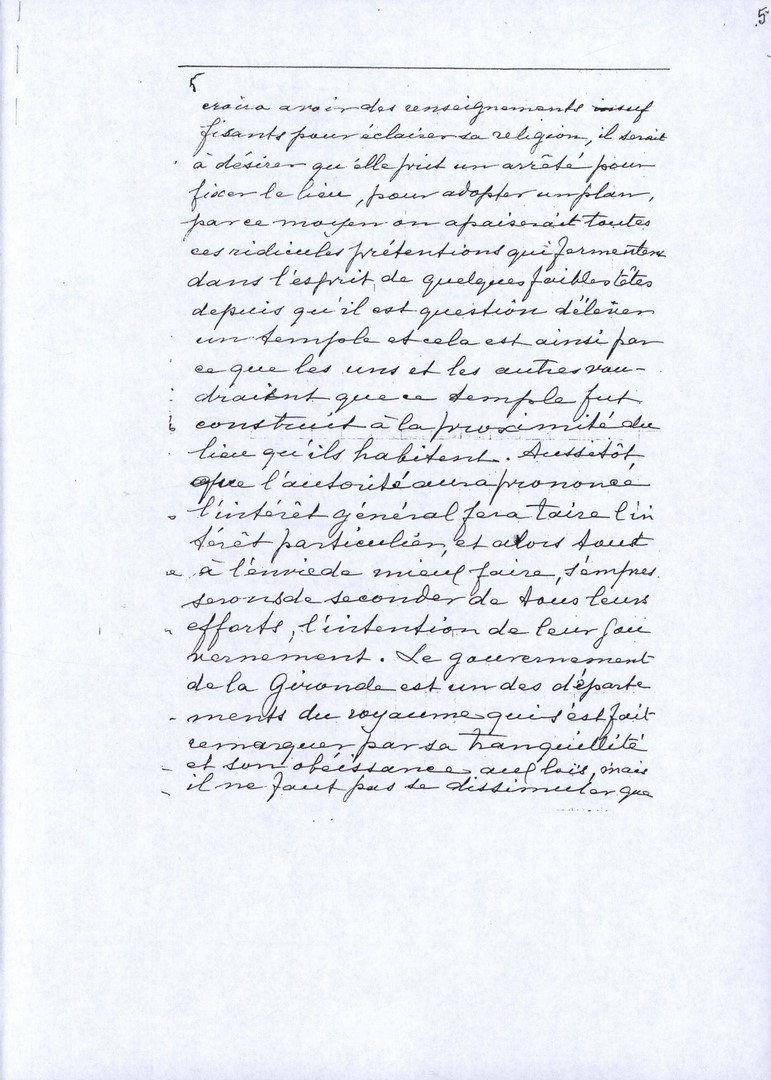 5
5
croira avoir des renseignements insuf
fisants pour éclairer sa religion, il serait
à désirer qu'elle prit un arrêté pour
fixer le lieu, pour adopter un plan,
par ce moyen on apaiserait toutes
ces ridicules prétentions qui fermentent
dans l'esprit de quelques faibles têtes
depuis qu'il est question d'élever
un temple et cela est ainsi par
ce que les uns et les autres vou-
draient que ce temple fut
construit à la proximité du
lieu qu'ils habitent. Aussitôt
que l'autorité aura prononcé
l'intérêt général fera taire l'in
térêt particulier, et alors tout
à l'envie de mieux faire, s'empres
serons de seconder de tous leurs
efforts, l'intention de leur gou
vernement. Le gouvernement
de la Gironde est un des départe
ments du royaume qui s'est fait
remarquer par sa tranquillité
et son obéissance aux lois, mais
il ne faut pas se dissimuler que